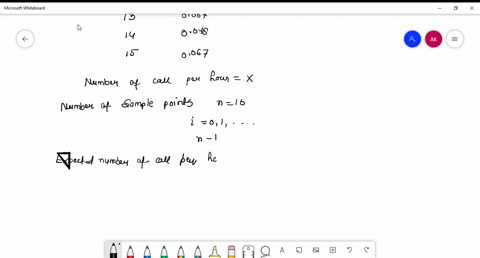 Microsoft Whiteboard
13 0.067
14 0.048
15 0.067
Number of call per hours = X
Number of Sample points n = 16
i = 0, 1, ....
n - 1
Expected number of call per ho
AK
A